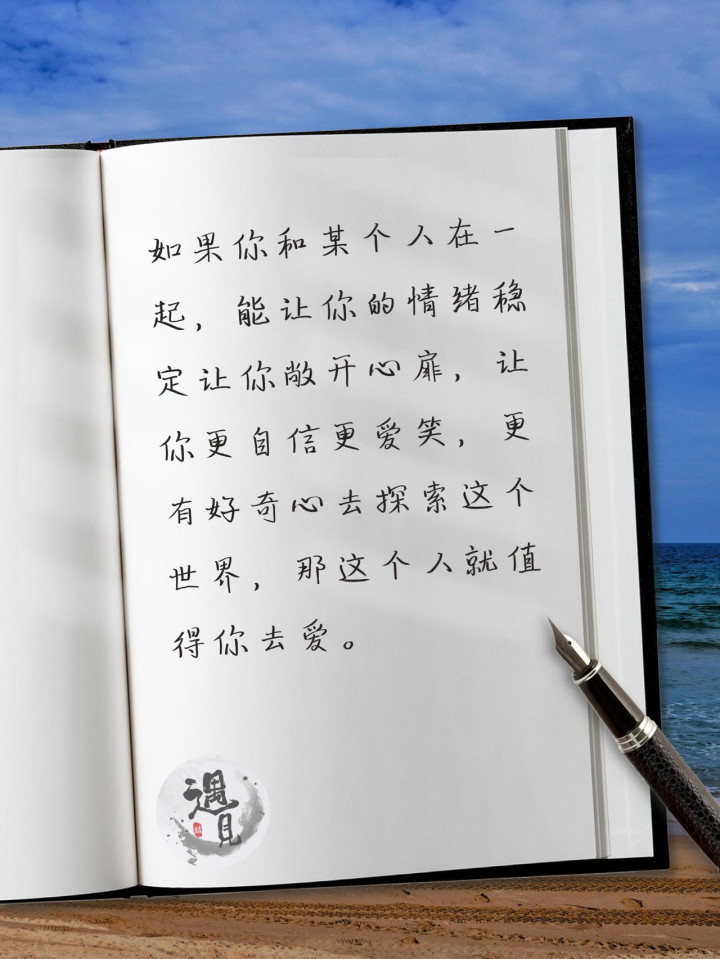 如果你和某个人在一
起，能让你的情绪稳
定让你敞开心扉，让
你更自信更爱笑，更
有好奇心去探索这个
世界，那这个人就值
得你去爱。
遇
見